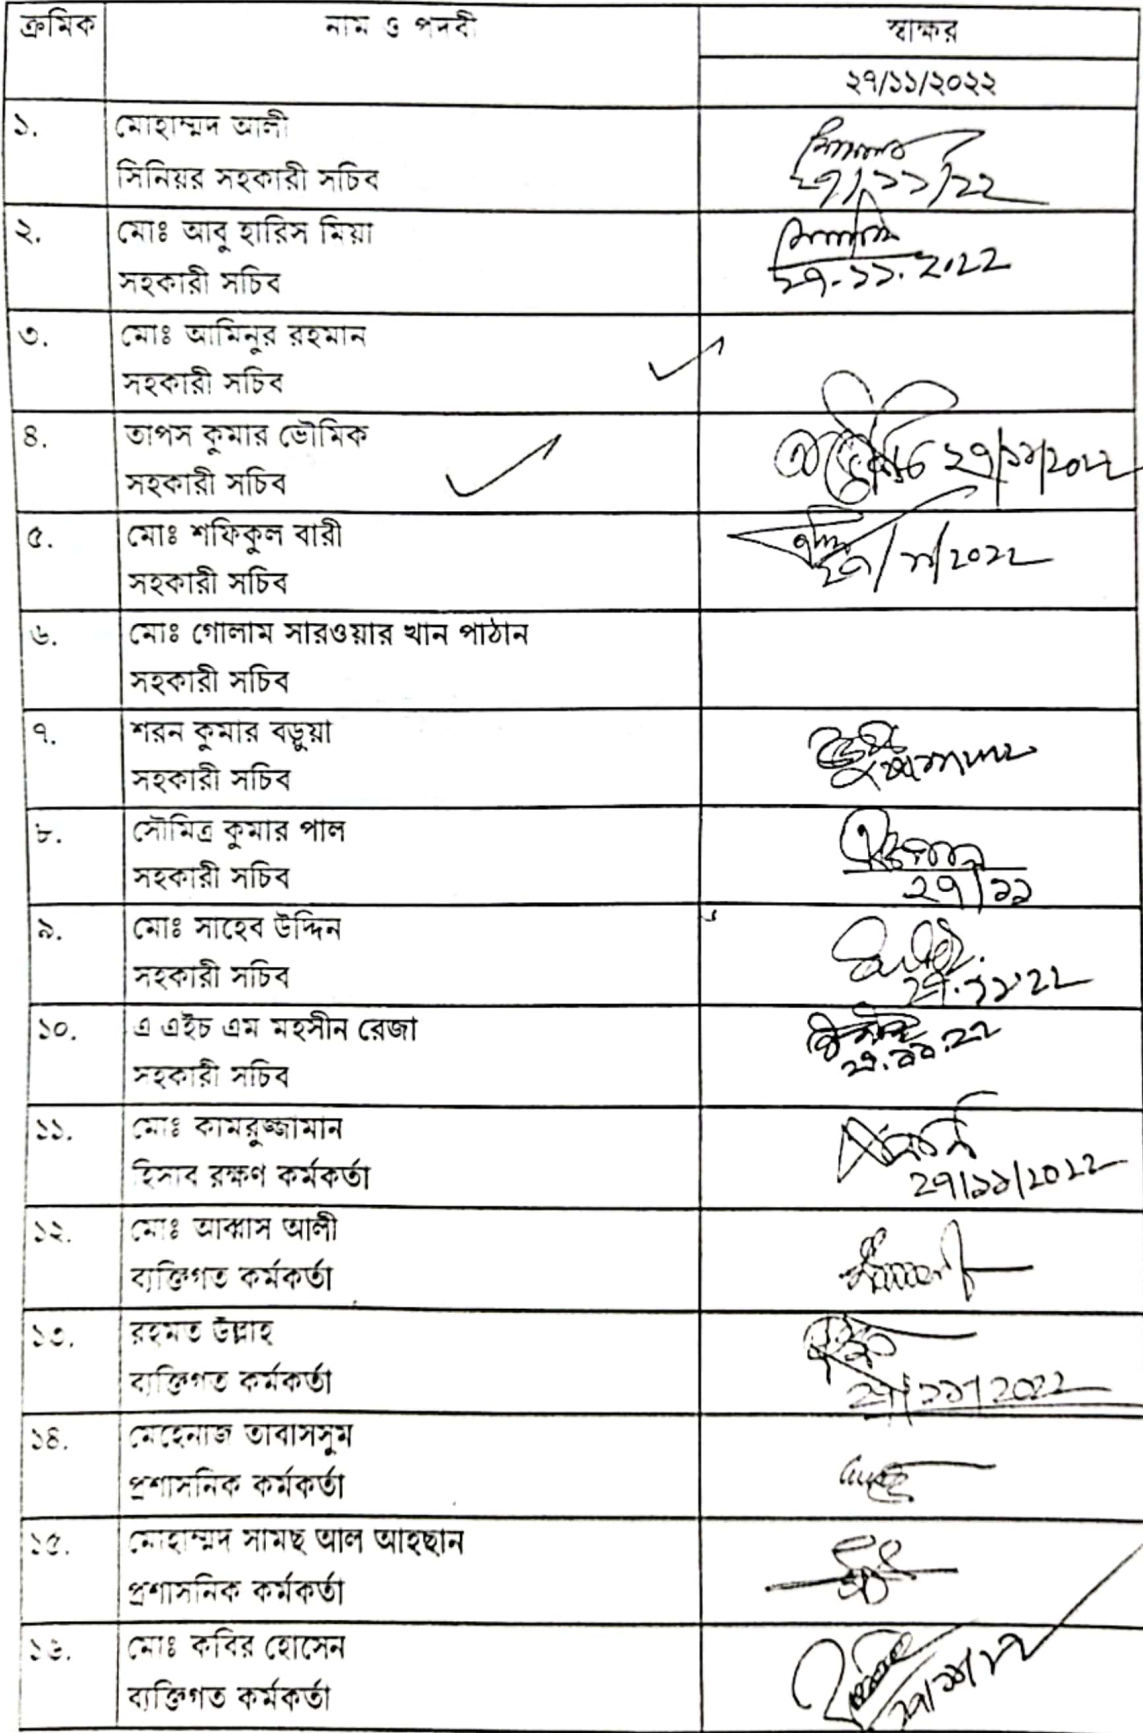 ক্রমিক নাম ও পদবী স্বাক্ষর
২৭/১১/২০২২
১. মোহাম্মদ আলী
সিনিয়র সহকারী সচিব
২৭/১১/২২
২. মোঃ আবু হারিস মিয়া
সহকারী সচিব
২৭.১১.২০২২
৩. মোঃ আমিনুর রহমান
সহকারী সচিব
৪. তাপস কুমার ভৌমিক
সহকারী সচিব
২৭/১১/২০২২
৫. মোঃ শফিকুল বারী
সহকারী সচিব
২৭/১১/২০২২
৬. মোঃ গোলাম সারওয়ার খান পাঠান
সহকারী সচিব
৭. শরন কুমার বড়ুয়া
সহকারী সচিব
৮. সৌমিত্র কুমার পাল
সহকারী সচিব
২৭/১১
৯. মোঃ সাহেব উদ্দিন
সহকারী সচিব
২৭.১১.২২
১০. এ এইচ এম মহসীন রেজা
সহকারী সচিব
২৭.১১.২২
১১. মোঃ কামরুজ্জামান
হিসাব রক্ষণ কর্মকর্তা
২৭/১১/২০২২
১২. মোঃ আব্বাস আলী
ব্যক্তিগত কর্মকর্তা
১৩. রহমত উল্লাহ
ব্যক্তিগত কর্মকর্তা
২৭/১১/২০২২
১৪. মেহেনাজ তাবাসসুম
প্রশাসনিক কর্মকর্তা
১৫. মোহাম্মদ সামছ আল আহছান
প্রশাসনিক কর্মকর্তা
১৬. মোঃ কবির হোসেন
ব্যক্তিগত কর্মকর্তা
২৭/১১/২২